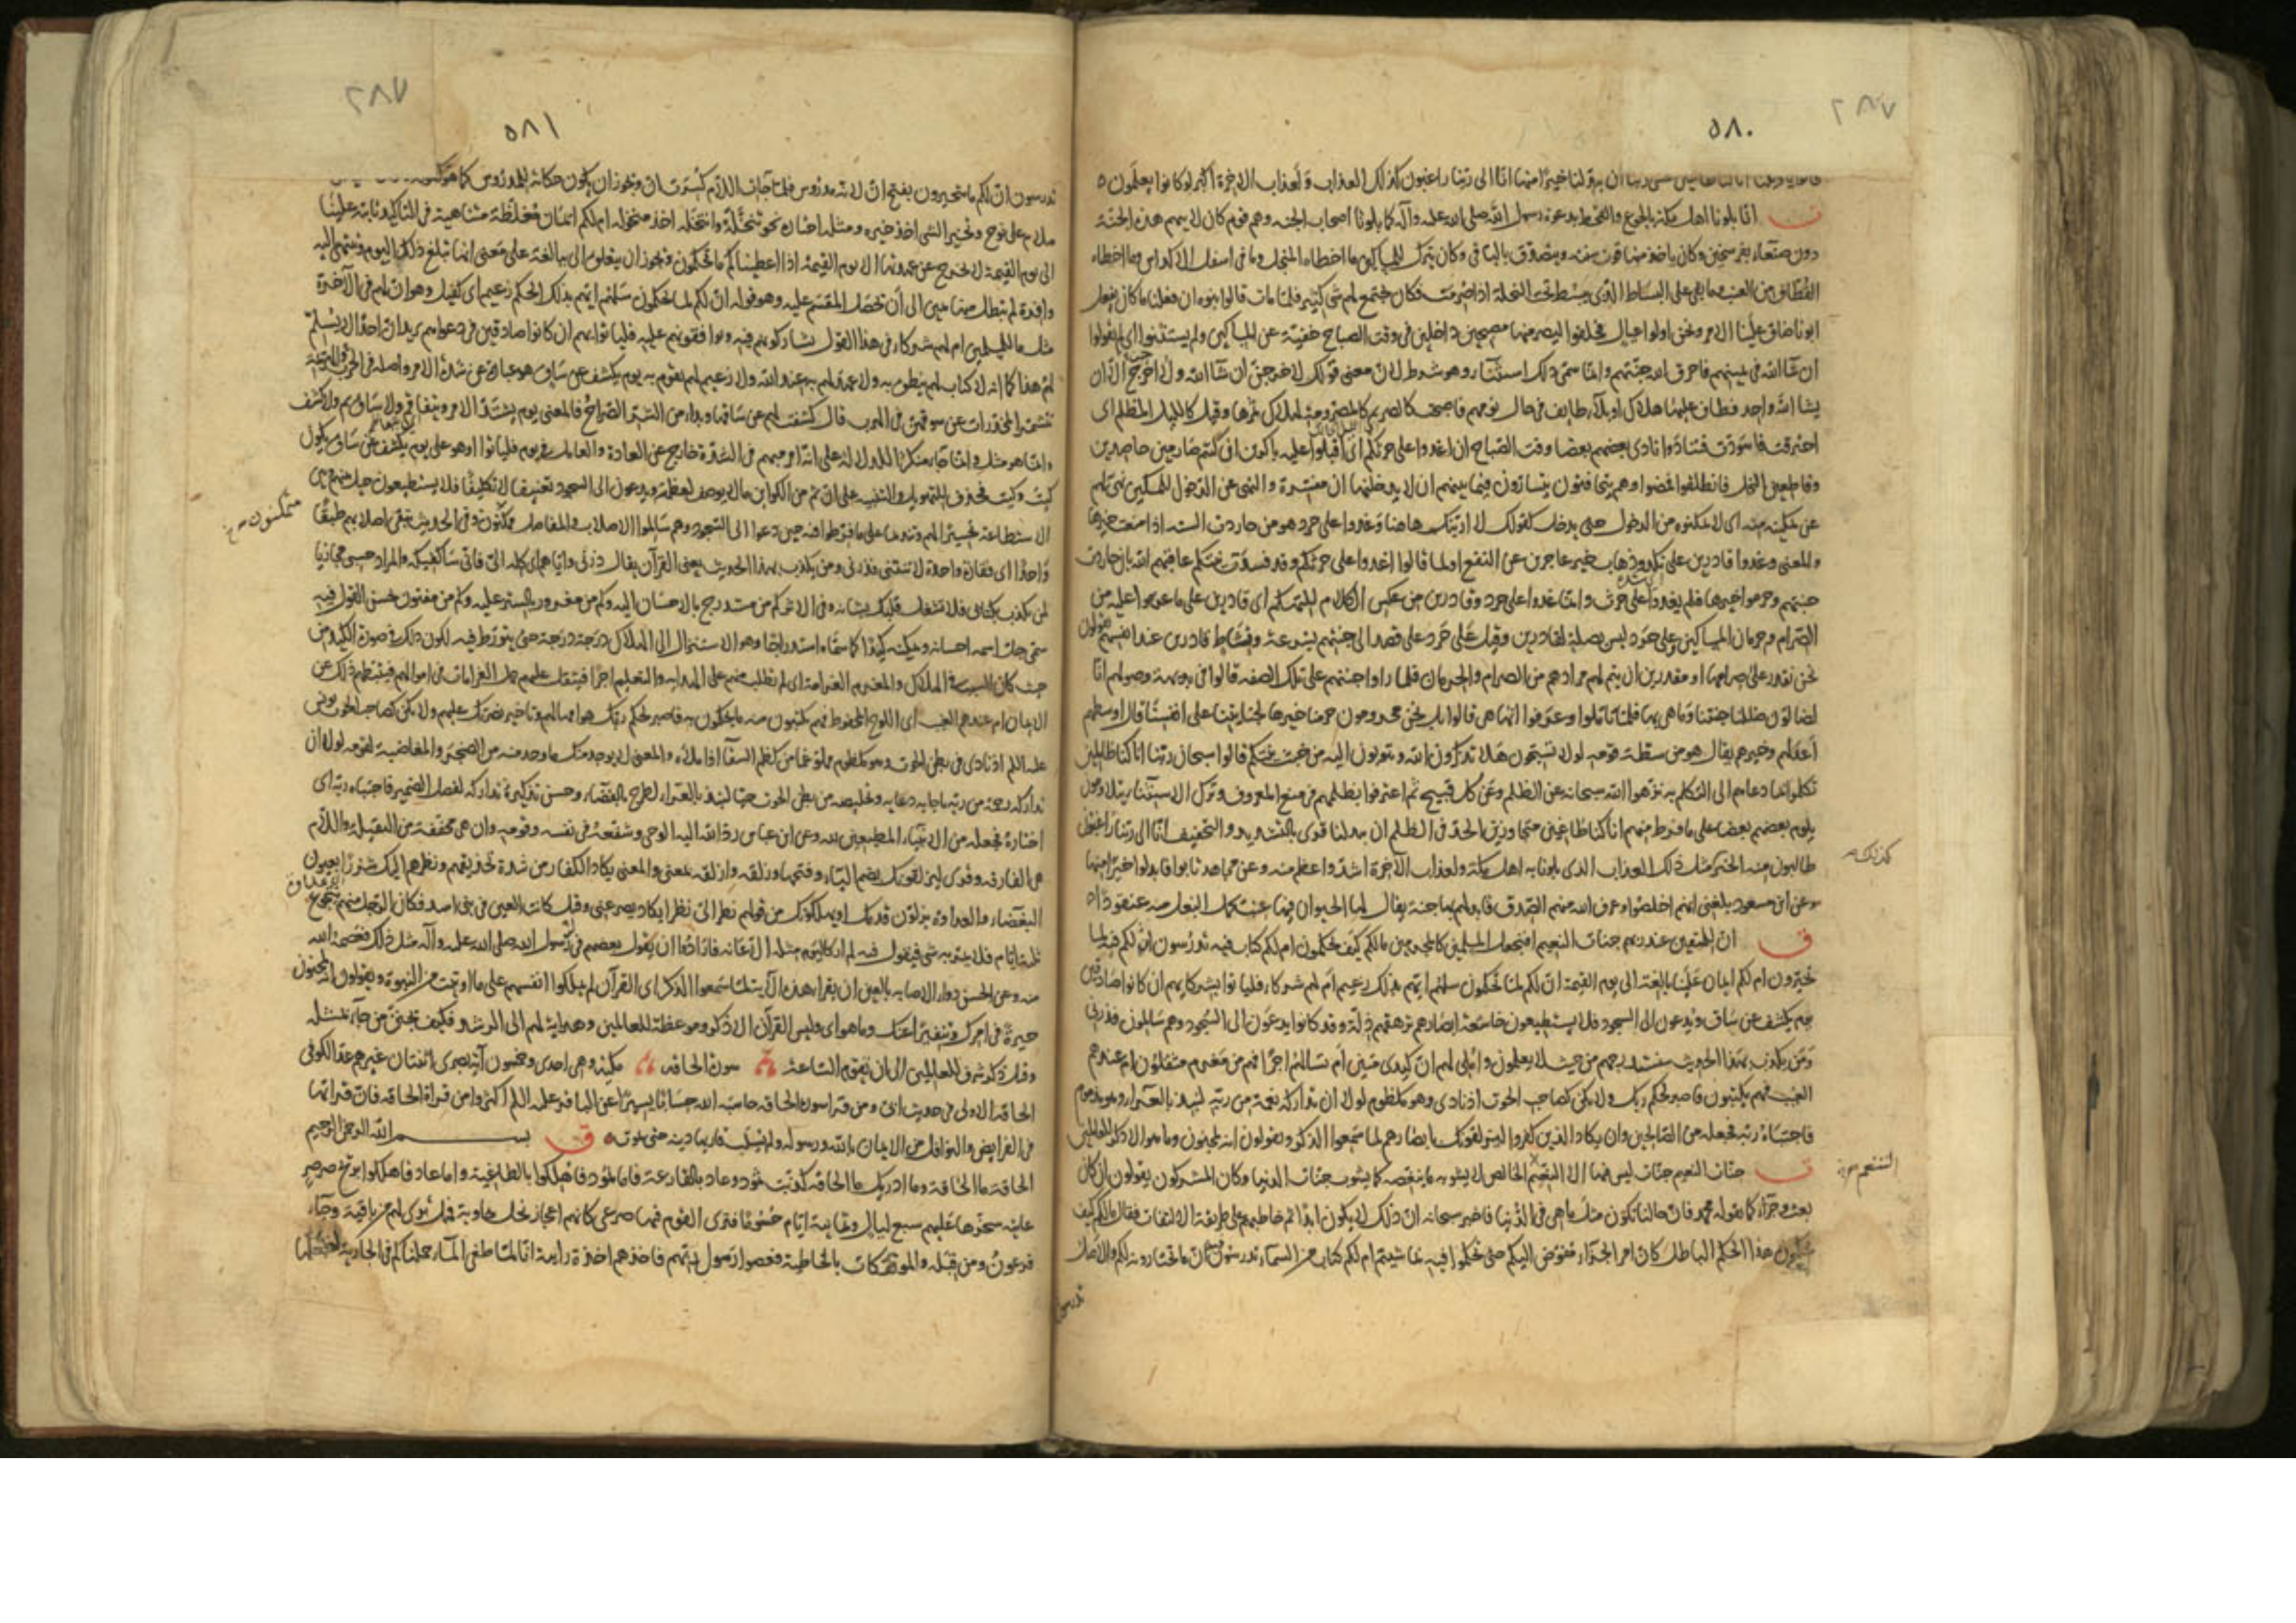 ٥٨٠
٢٨٧
ان يبدلنا خيرا منها انا الى ربنا راغبون كذلك العذاب ولعذاب الاخرة اكبر لو كانوا يعلمون ه
انا بلونا اهل مكة بالجوع والقحط بدعوة رسول الله صلى الله عليه وآله كما بلونا اصحاب الجنة وهم قوم كان لابيهم هذه الجنة
دون صنعاء بفرسخين وكان ياخذ منها قوت سنته ويتصدق بالباقي وكان يترك للمساكين ما اخطاه المنجل وما في اسفل الاكداس وما اخطاه
القطاف من العنب وما بقي على البساط الذي يبسط تحت النخلة اذا صرمت فكان يجتمع لهم شئ كثير فلما مات قال بنوه ان فعلنا ما كان يفعل
ابونا ضاق علينا الامر ونحن اولوا عيال فحلفوا ليصرمنها مصبحين داخلين في وقت الصباح خفية عن المساكين ولم يستثنوا اي لم يقولوا
ان شاء الله في يمينهم فاحرق الله جنتهم وانما سمي ذلك استثناء وهو شرط لان معنى قولك لاخرجن ان شاء الله ولا اخرج الا ان
يشا الله واحد فطاف عليها هلاك او بلاء طايف في حال نومهم فاصبحت كالصريم كالمصروم لهلاك ثمرها وقيل كالليل المظلم اي
احترقت فاسودت فتنادوا نادى بعضهم بعضا وقت الصباح ان اغدوا على حرثكم اي اقبلوا عليه باكرين ان كنتم صارمين حاصدين
وقاطعين النخل فانطلقوا فمضوا وهم يتخافتون يتسارون فيما بينهم ان لا يدخلنها ان مفسرة والنهي عن الدخول للمسكين نهي لهم
عن تمكينه منه اي لا تمكنوه من الدخول حتى يدخل كقولك لا ارينك هاهنا وغدوا على حرد هو من حاردت السنة اذا منعت خيرها
والمعنى وغدوا قادرين على نكد وذهاب خير عاجزين عن النفع او لما قالوا اغدوا على حرثكم وقد فسدت نيتكم عاقبهم الله بان حاردت
جنتهم وحرموا خيرها فلم يغدوا على حرث وانما غدوا على حرد وقادرين من عكس الكلام للتهكم اي قادرين على ما عزموا عليه من
الصرام وحرمان المساكين وعلى حرد ليس بصلة لقادرين وقيل على حرد على قصد الى جنتهم بسرعة ونشاط قادرين عند انفسهم يقولون
نحن نقدر على صرامها او مقدرين ان يتم لهم مرادهم من الصرام والحرمان فلما راوا جنتهم على تلك الصفة قالوا في بديهة وصولهم انا
لضالون ضللنا جنتنا وما هي بها فلما تاملوا وعرفوا انها هي قالوا بل نحن محرومون حرمنا خيرها لجنايتنا على انفسنا قال اوسطهم
اعدلهم وخيرهم يقال هو من سطة قومه لولا تسبحون هلا تذكرون الله وتتوبون اليه من خبث نيتكم قالوا سبحان ربنا انا كنا ظالمين
تكلموا بما دعاهم الى التكلم به نزهوا الله سبحانه عن الظلم وعن كل قبيح ثم اعترفوا بظلمهم في منع المعروف وترك الاستثناء يتلاومون
يلوم بعضهم بعضا على ما فرط منهم انا كنا طاغين متجاوزين الحد في الظلم ان يبدلنا قرى بالتشديد والتخفيف انا الى ربنا راغبون
طالبون منه الخير مثل ذلك العذاب الذي بلونا به اهل مكة ولعذاب الآخرة اشد واعظم منه وعن مجاهد تابوا فابدلوا خيرا منها
وعن ابن مسعود بلغني انهم اخلصوا وعرف الله منهم الصدق فابدلهم بها جنة يقال لها الحيوان فيها عنب يحمل البغل منه عنقودا ه
ق ان للمتقين عند ربهم جنات النعيم افنجعل المسلمين كالمجرمين مالكم كيف تحكمون ام لكم كتاب فيه تدرسون ان لكم فيه لما
تخيرون ام لكم ايمان علينا بالغة الى يوم القيمة ان لكم لما تحكمون سلهم ايهم بذلك زعيم ام لهم شركاء فلياتوا بشركايهم ان كانوا صادقين
يوم يكشف عن ساق ويدعون الى السجود فلا يستطيعون خاشعة ابصارهم ترهقهم ذلة وقد كانوا يدعون الى السجود وهم سالمون فذرني
ومن يكذب بهذا الحديث سنستدرجهم من حيث لا يعلمون واملي لهم ان كيدي متين ام تسالهم اجرا فهم من مغرم مثقلون ام عندهم
الغيب فهم يكتبون فاصبر لحكم ربك ولا تكن كصاحب الحوت اذ نادى وهو مكظوم لولا ان تداركه نعمة من ربه لنبذ بالعراء وهو مذموم
فاجتباه ربه فجعله من الصالحين وان يكاد الذين كفروا ليزلقونك بابصارهم لما سمعوا الذكر ويقولون انه لمجنون وما هو الا ذكر للعالمين
جنات النعيم جنات ليس فيها الا النعيم الخالص لا يشوبه ما ينغصه كما يشوب جنات الدنيا وكان المشركون يقولون ان كان
بعث وجزاء كما يقوله محمد فان حالنا تكون مثل ما هي في الدنيا فاخبر سبحانه ان ذلك لا يكون ابدا ثم خاطبهم على طريقة الالتفات فقال مالكم كيف
تحكمون هذا الحكم الباطل كان امر الجزاء مفوض اليكم حتى تحكموا فيه بما شيتم ام لكم كتاب من السماء تدرسون فيه ان ما تختارونه لكم والاصل
التنعم
تدرسون
٥٨١
٢٨٧
تدرسون ان لكم ما تتخيرون بفتح ان لانه مدروس فلما جاءت اللام كسرت ان ويجوز ان يكون حكاية للمدروس كما هو
سلام على نوح وتخير الشئ اخذ خيره ومثله اختاره نحو تنخله وانتخله اخذ منخوله ام لكم ايمان مغلظة متناهية في التاكيد ثابتة علينا
الى يوم القيمة لا نخرج عن عهدتها الا يوم القيمة اذا اعطيناكم ما تحكمون ويجوز ان يتعلق الى ببالغة على معنى انها تبلغ ذلك اليوم وتنتهي اليه
وافرة لم تبطل منها يمين الى ان تحصل المقسم عليه وهو قوله ان لكم لما تحكمون سلهم ايهم بذلك الحكم زعيم اي كفيل وهو ان لهم في الآخرة
مثل ما للمسلمين ام لهم شركاء في هذا القول يشاركونهم فيه ويوافقونهم عليه فلياتوا بهم ان كانوا صادقين في دعواهم يريد ان احدا لا يسلم
لهم هذا كما انه لا كتاب لهم ينطق به ولا عهد لهم به عند الله ولا زعيم لهم يقوم به يوم يكشف عن ساق هو عبارة عن شدة الامر واصله في الحرب
تشمر المخدرات عن سوقهن في الهرب قال كشفت لهم عن ساقها وبدا من الشر الصراح فالمعنى يوم يشتد الامر ويتفاقم ولا ساق ثم ولا كشف
وانما هو مثل وانما جاء منكرا للدلالة على انه امر مبهم في الشدة خارج عن العادة والعامل في يوم فلياتوا او هو على يوم يكشف عن ساق يكون
كيت وكيت فحذف للتهويل والتنبيه على ان ثم من الكوائن ما لا يوصف لعظمه ويدعون الى السجود تعنيفا لا تكليفا فلا يستطيعون حيل بينهم وبين
الاستطاعة تحسيرا لهم وتنديما على ما فرطوا فيه حين دعوا الى السجود وهم سالموا الاصلاب والمفاصل ممكنون وفي الحديث تبقى اصلابهم طبقا
واحدا اي فقارة واحدة لا تنثني فذرني ومن يكذب بهذا الحديث يعني القرآن يقال ذرني واياه اي كله الي فاني ساكفيكه والمراد حسبي مجازيا
لمن يكذب بكتابي فلا تشغل قلبك بشانه وفي الاثر كم من مستدرج بالاحسان اليه وكم من مغرور بالستر عليه وكم من مفتون بحسن القول فيه
سمي جل اسمه احسانه وتمكينه كيدا كما سماه استدراجا وهو الاستنزال الى الهلاك درجة درجة حتى يتورط فيه لكون ذلك في صورة الكيد من
حيث كان السبب في الهلاك والمغرم الغرامة اي لم تطلب منهم على الهداية والتعليم اجرا فيثقل عليهم حمل الغرامات في اموالهم فيثبطهم ذلك عن
الايمان ام عندهم الغيب اي اللوح المحفوظ فهم يكتبون منه ما يحكمون به فاصبر لحكم ربك وهو امهالهم وتاخير نصرتك عليهم ولا تكن كصاحب الحوت يونس
عليه السلم اذ نادى في بطن الحوت وهو مكظوم مملو غما من كظم السقاء اذا ملاه والمعنى لا يوجد منك ما وجد منه من الضجر والمغاضبة لقومه لولا ان
تداركه رحمة من ربه باجابة دعايه وتخليصه من بطن الحوت حيا لنبذ بالعراء لطرح بالفضاء وحسن تذكير تداركه لفصل الضمير فاجتباه ربه اي
اختاره فجعله من الانبياء المطيعين لله وعن ابن عباس رد الله اليه الوحي وشفعه في نفسه وقومه وان هي مخففة من الثقيلة واللام
هي الفارقة وقرى ليزلقونك بضم الياء وفتحها وزلقه وازلقه بمعنى والمعنى يكاد الكفار من شدة تحديقهم ونظرهم اليك شزرا بعيون
البغضاء والعداوة يزلون قدمك او يهلكونك من قولهم نظر الي نظرا يكاد يصرعني وقيل كانت العين في بني اسد فكان الرجل منهم يتجوع
ثلثة ايام فلا يمر به شئ فيقول فيه لم ار كاليوم مثله الا عانه فارادوا ان يقول بعضهم في رسول الله صلى الله عليه وآله مثل ذلك فعصمه الله
منه وعن الحسن دواء الاصابة بالعين ان يقراء هذه الآية لما سمعوا الذكر اي القرآن لم يملكوا انفسهم على ما اوتيت من النبوة ويقولون انه لمجنون
حيرة في امرك وتنفيرا عنك وما هو اي وليس القرآن الا ذكر وموعظة للعالمين وهداية لهم الى الرشد فكيف يجنن من جاء بمثله
وقيل ذكر شرف للعالمين الى ان تقوم الساعة سورة الحاقة مكية وهي احدى وخمسون آية بصرى اثنتان غيرهم عد الكوفي
الحاقة الاولى في حديث ابي ومن قرا سورة الحاقة حاسبه الله حسابا يسيرا عن الباقر عليه السلم اكثروا من قراءة الحاقة فان قراتها
في الفرايض والنوافل من الايمان بالله ورسوله ولم يسلب قاريها دينه حتى يموت ه ق بسم الله الرحمن الرحيم
الحاقة ما الحاقة وما ادريك ما الحاقة كذبت ثمود وعاد بالقارعة فاما ثمود فاهلكوا بالطاغية واما عاد فاهلكوا بريح صرصر
عاتية سخرها عليهم سبع ليال وثمانية ايام حسوما فترى القوم فيها صرعى كانهم اعجاز نخل خاوية فهل ترى لهم من باقية وجاء
فرعون ومن قبله والمؤتفكات بالخاطية فعصوا رسول ربهم فاخذهم اخذة رابية انا لما طغى الماء حملناكم في الجارية لنجعلها
متمكنون خ